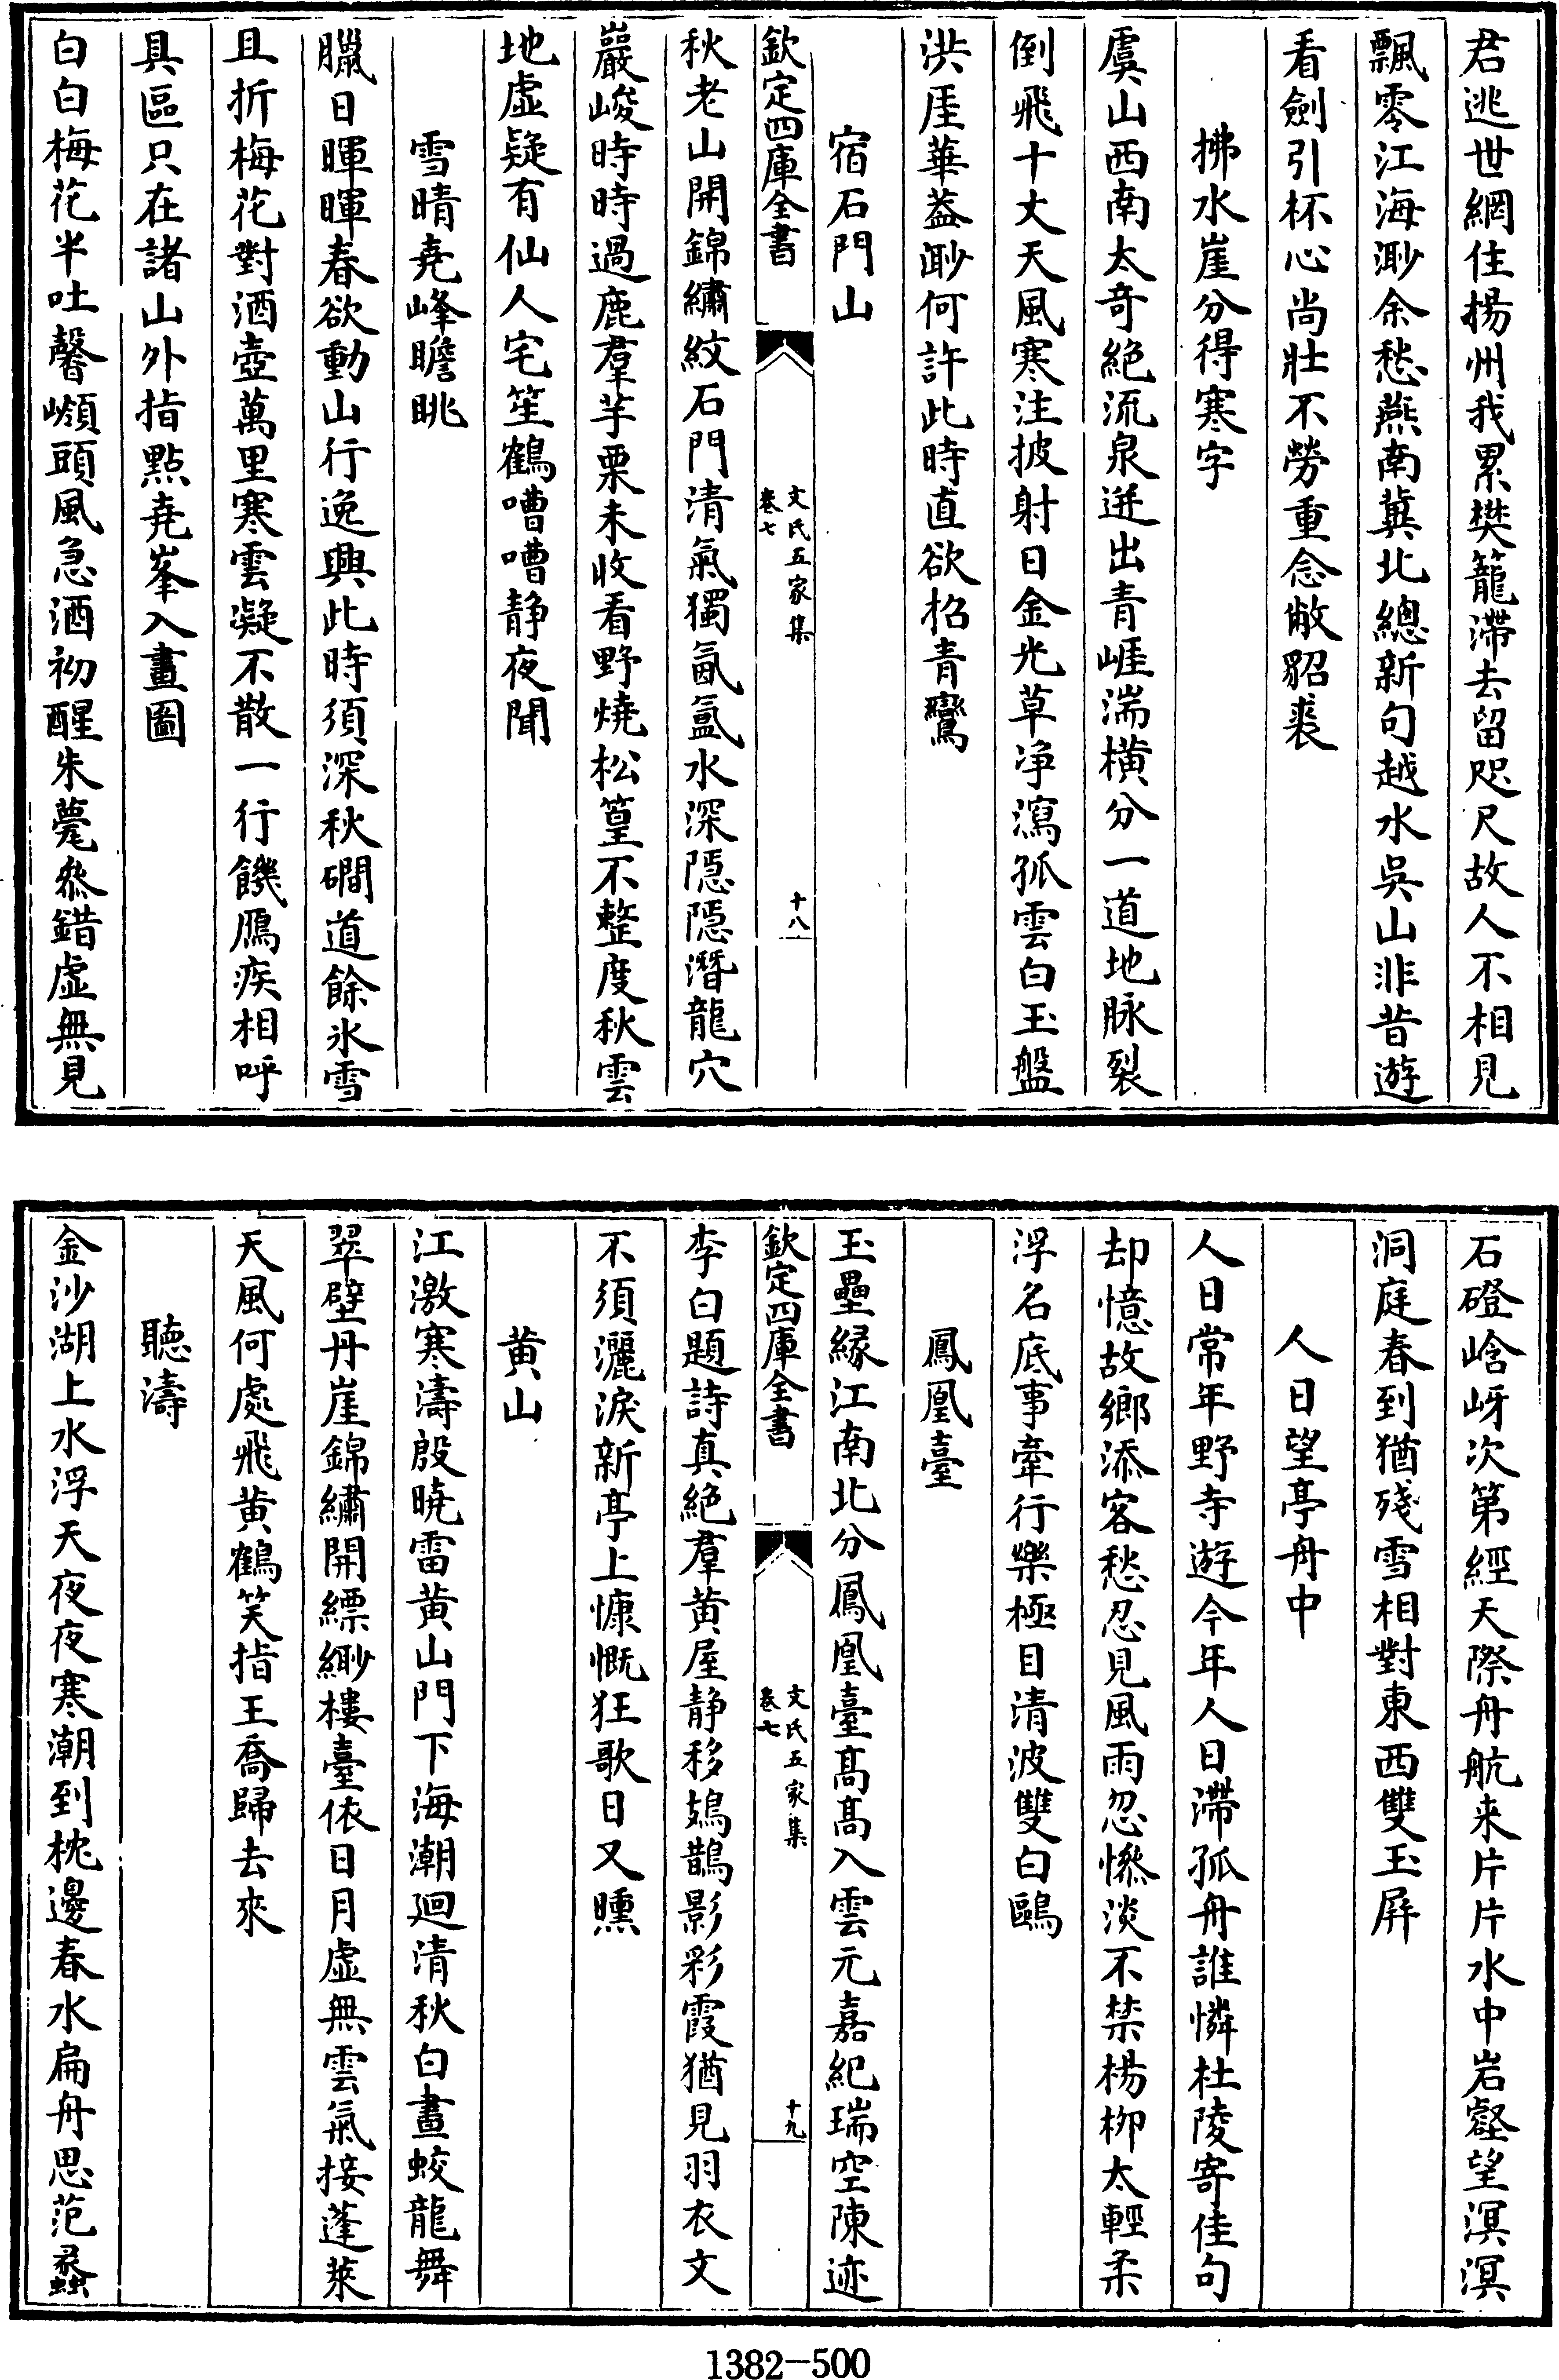 君逃世網住揚州我累樊籠滯去留咫尺故人不相見
飄零江海渺余愁燕南冀北總新句越水吳山非昔遊
看劍引杯心尚壯不勞重念敝貂裘
拂水崖分得寒字
虞山西南太奇絶流泉迸出青崕湍横分一道地脉裂
倒飛十丈天風寒注披射日金光草净瀉孤雲白玉盤
洪厓華葢渺何許此時直欲招青鸞
宿石門山
欽定四庫全書
文氏五家集
卷七
十八
秋老山開錦繡紋石門清氣獨氤氲水深隠隠潛龍穴
巖峻時時過鹿羣芋栗未收看野燒松篁不整度秋雲
地虛疑有仙人宅笙鶴嘈嘈静夜聞
雪晴堯峰瞻眺
臘日暉暉春欲動山行逸興此時須深秋磵道餘氷雪
且折梅花對酒壺萬里寒雲凝不散一行饑鴈疾相呼
具區只在諸山外指點堯峯入畫圖
白白梅花半吐馨嶺頭風急酒初醒朱甍叅錯虛無見
石磴㟏岈次第經天際舟航来片片水中岩壑望溟溟
洞庭春到猶殘雪相對東西雙玉屏
人日望亭舟中
人日常年野寺遊今年人日滯孤舟誰憐杜陵寄佳句
却憶故鄉添客愁忍見風雨忽慘淡不禁楊栁太輕柔
浮名底事牽行樂極目清波雙白鷗
鳳凰臺
玉壘縁江南北分鳳凰臺髙髙入雲元嘉紀瑞空陳迹
欽定四庫全書
文氏五家集
卷七
十九
李白題詩真絶羣黄屋静移鳷鵲影彩霞猶見羽衣文
不須灑淚新亭上慷慨狂歌日又曛
黄山
江激寒濤殷曉雷黄山門下海潮廻清秋白晝蛟龍舞
翠壁丹崖錦繡開縹緲樓臺依日月虛無雲氣接蓬萊
天風何處飛黄鶴笑指王喬歸去來
聽濤
金沙湖上水浮天夜夜寒潮到枕邊春水扁舟思范蠡
1382-500